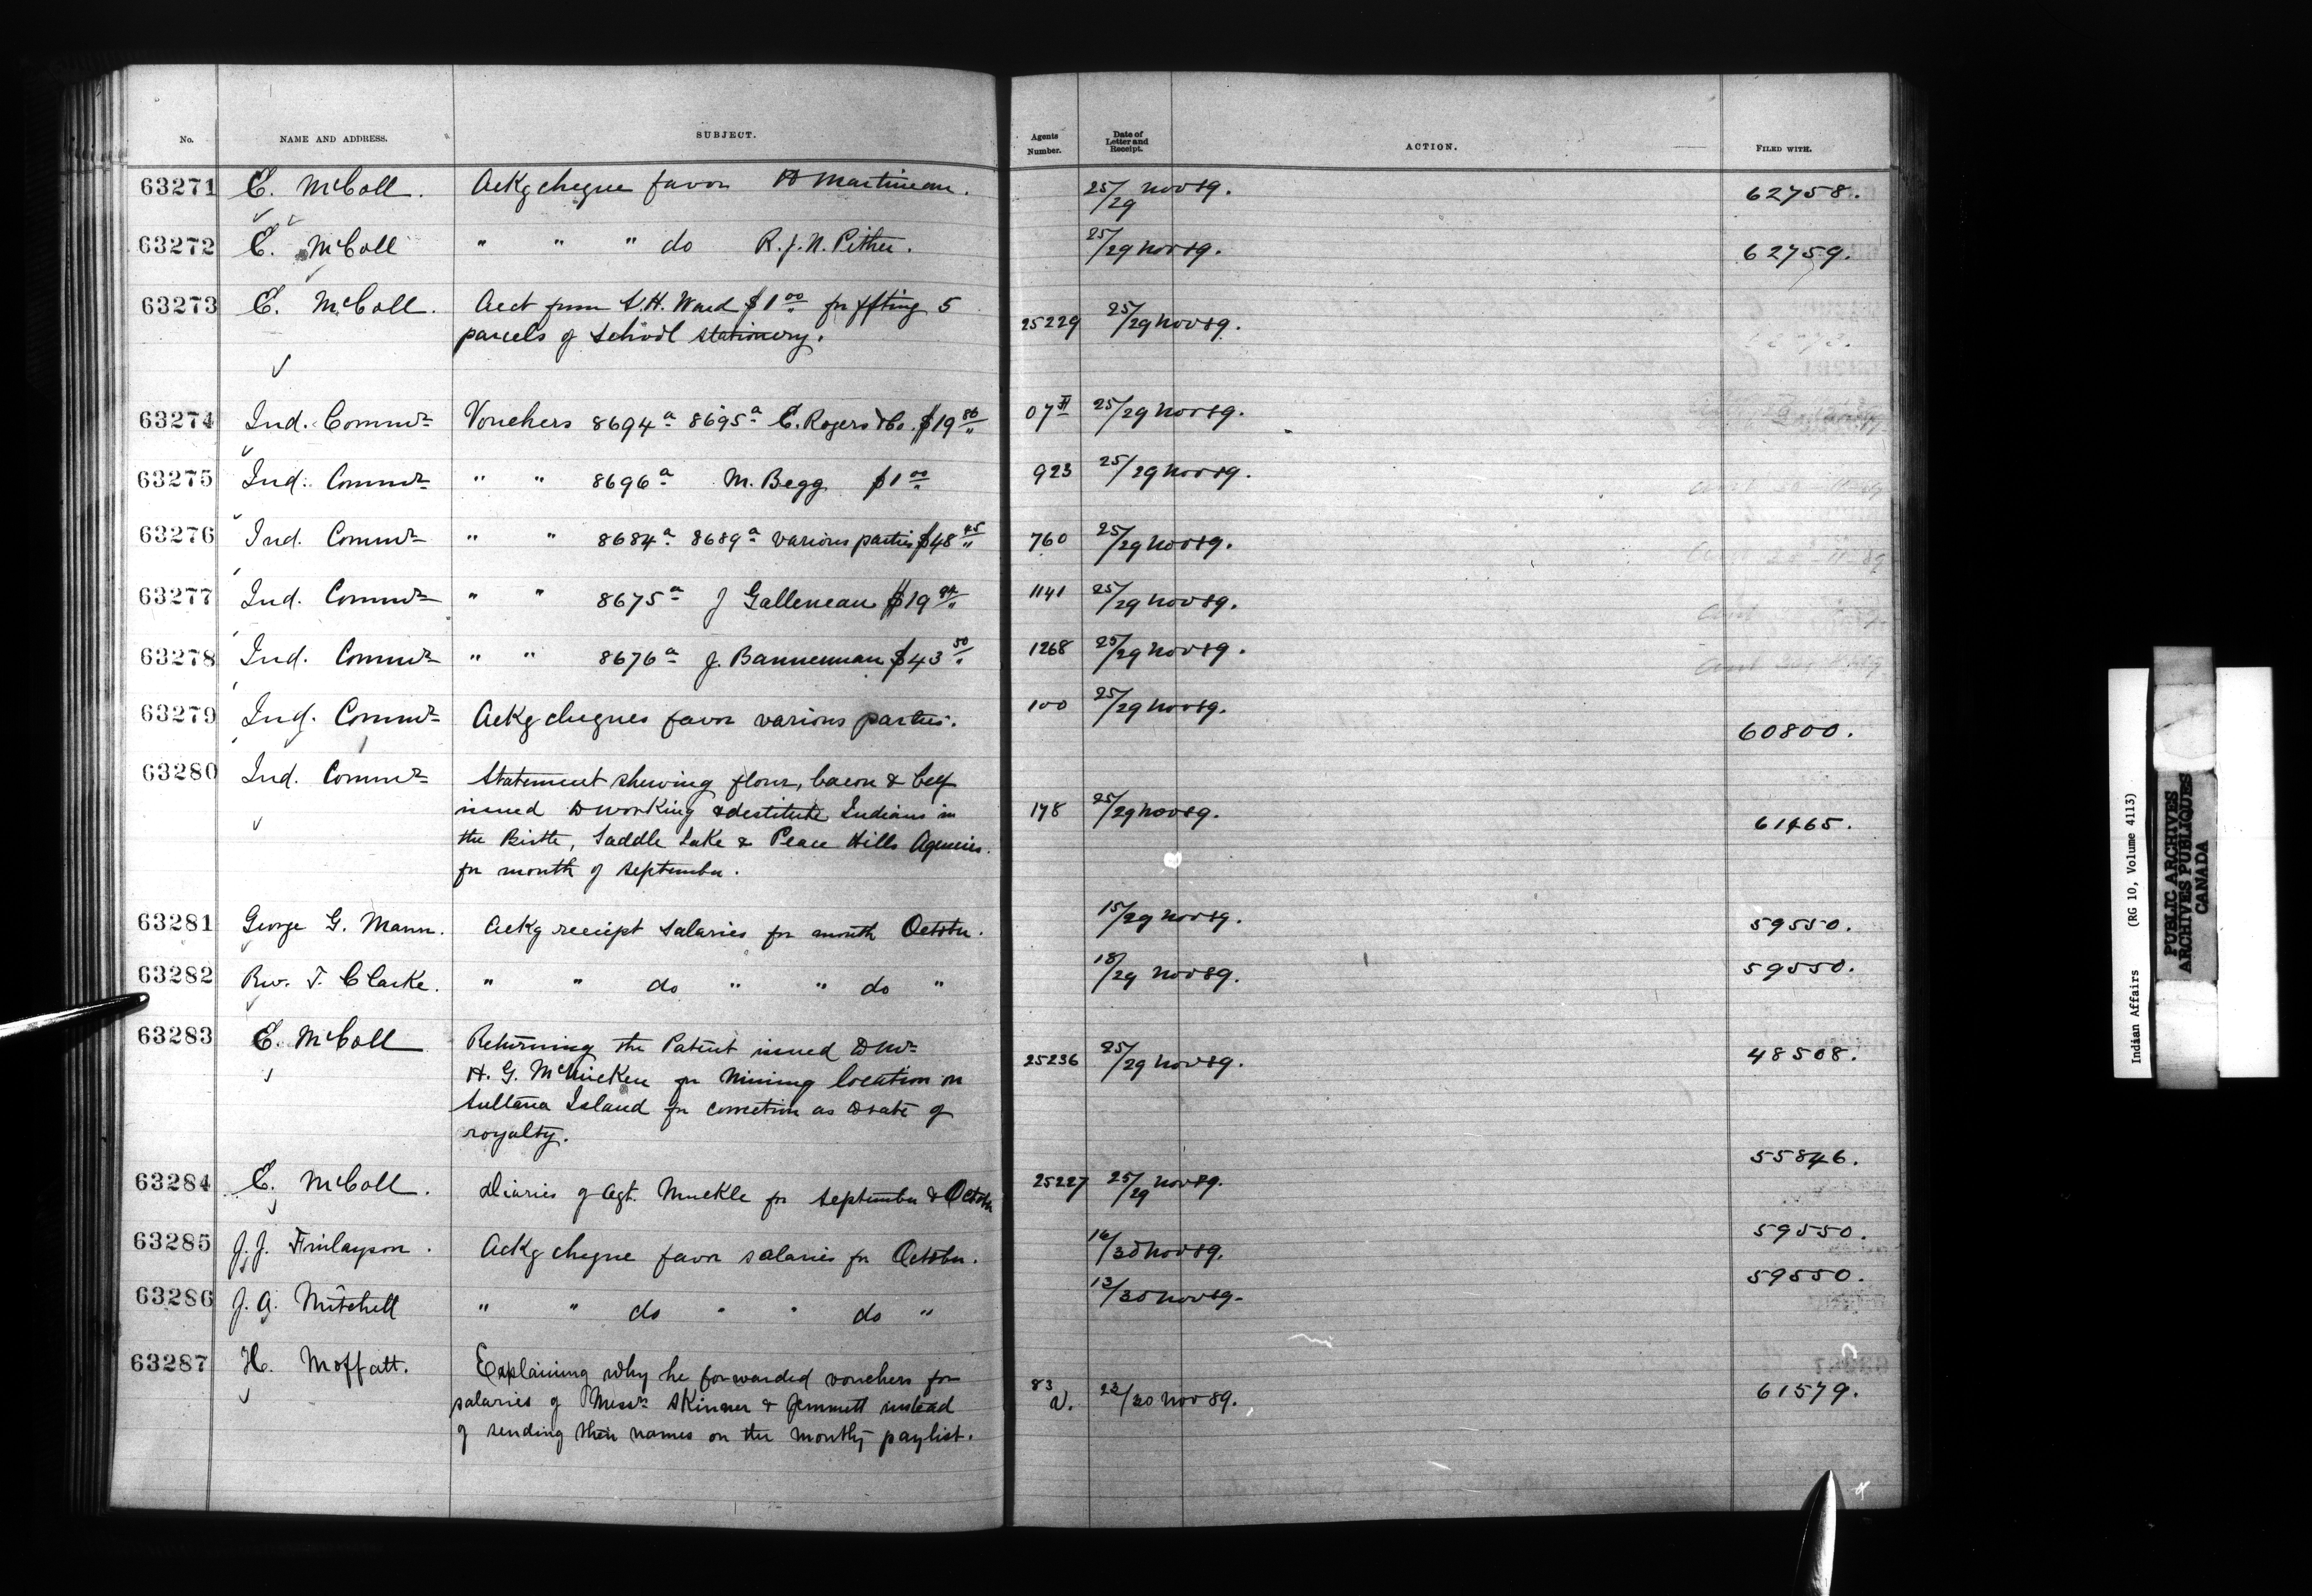 No. NAME AND ADDRESS. SUBJECT. Agents Number. Date of Letter and Receipt. ACTION. FILED WITH.
63271 E. McColl. Ackg cheque favor H Martineau. 25/29 Nov 89. 62758.
63272 E. McColl " " " do R.J.N. Pither. 25/29 Nov 89. 62759.
63273 E. McColl. Acct from S.H. Ward $1 00 for ffting 5 25229 25/29 Nov 89.
parcels of School stationery.
63274 Ind. Commr Vouchers 8694a 8695a C. Rogers & Co. $19 86 07 25/29 Nov 89.
63275 Ind. Commr " " 8696a M. Begg $1 00 923 25/29 Nov 89.
63276 Ind. Commr " " 8684a 8689a various parties $48 45 760 25/29 Nov 89.
63277 Ind. Commr " " 8675a J Galleneau $19 1141 25/29 Nov 89.
63278 Ind. Commr " " 8676a J. Bannerman $43 50 1268 25/29 Nov 89.
63279 Ind. Commr Ackg cheques favor various parties. 100 25/29 Nov 89. 60800.
63280 Ind. Commr Statement shewing flour, bacon & beef
issued to working & destitute Indians in 178 25/29 Nov 89. 61465.
the Birtle, Saddle Lake & Peace Hills Agencies.
for month of September.
63281 George G. Mann. Ackg receipt salaries for month October. 15/29 Nov 89. 59550.
63282 Rev. T. Clarke. " " do " " do " 18/29 Nov 89. 59550.
63283 E. McColl Returning the Patent issued to Mr 25236 25/29 Nov 89. 48508.
H. G. McMicken for Mining location on
Sultana Island for correction as to rate of
royalty.
63284 E. McColl. Diaries of Agt. Muckle for September & October 25227 25/29 Nov 89. 55846.
63285 J. J. Finlayson. Ackg cheque favor salaries for October. 16/30 Nov 89. 59550.
63286 J. A. Mitchell " " do " " do " 13/30 Nov 89. 59550.
63287 H. Moffatt. Explaining why he forwarded vouchers for
salaries of Messrs Skinner & Jemmett instead 83 23/30 Nov 89. 61579.
of sending their names on the monthly paylist.
Indian Affairs (RG 10, Volume 4113)
PUBLIC ARCHIVES
ARCHIVES PUBLIQUES
CANADA